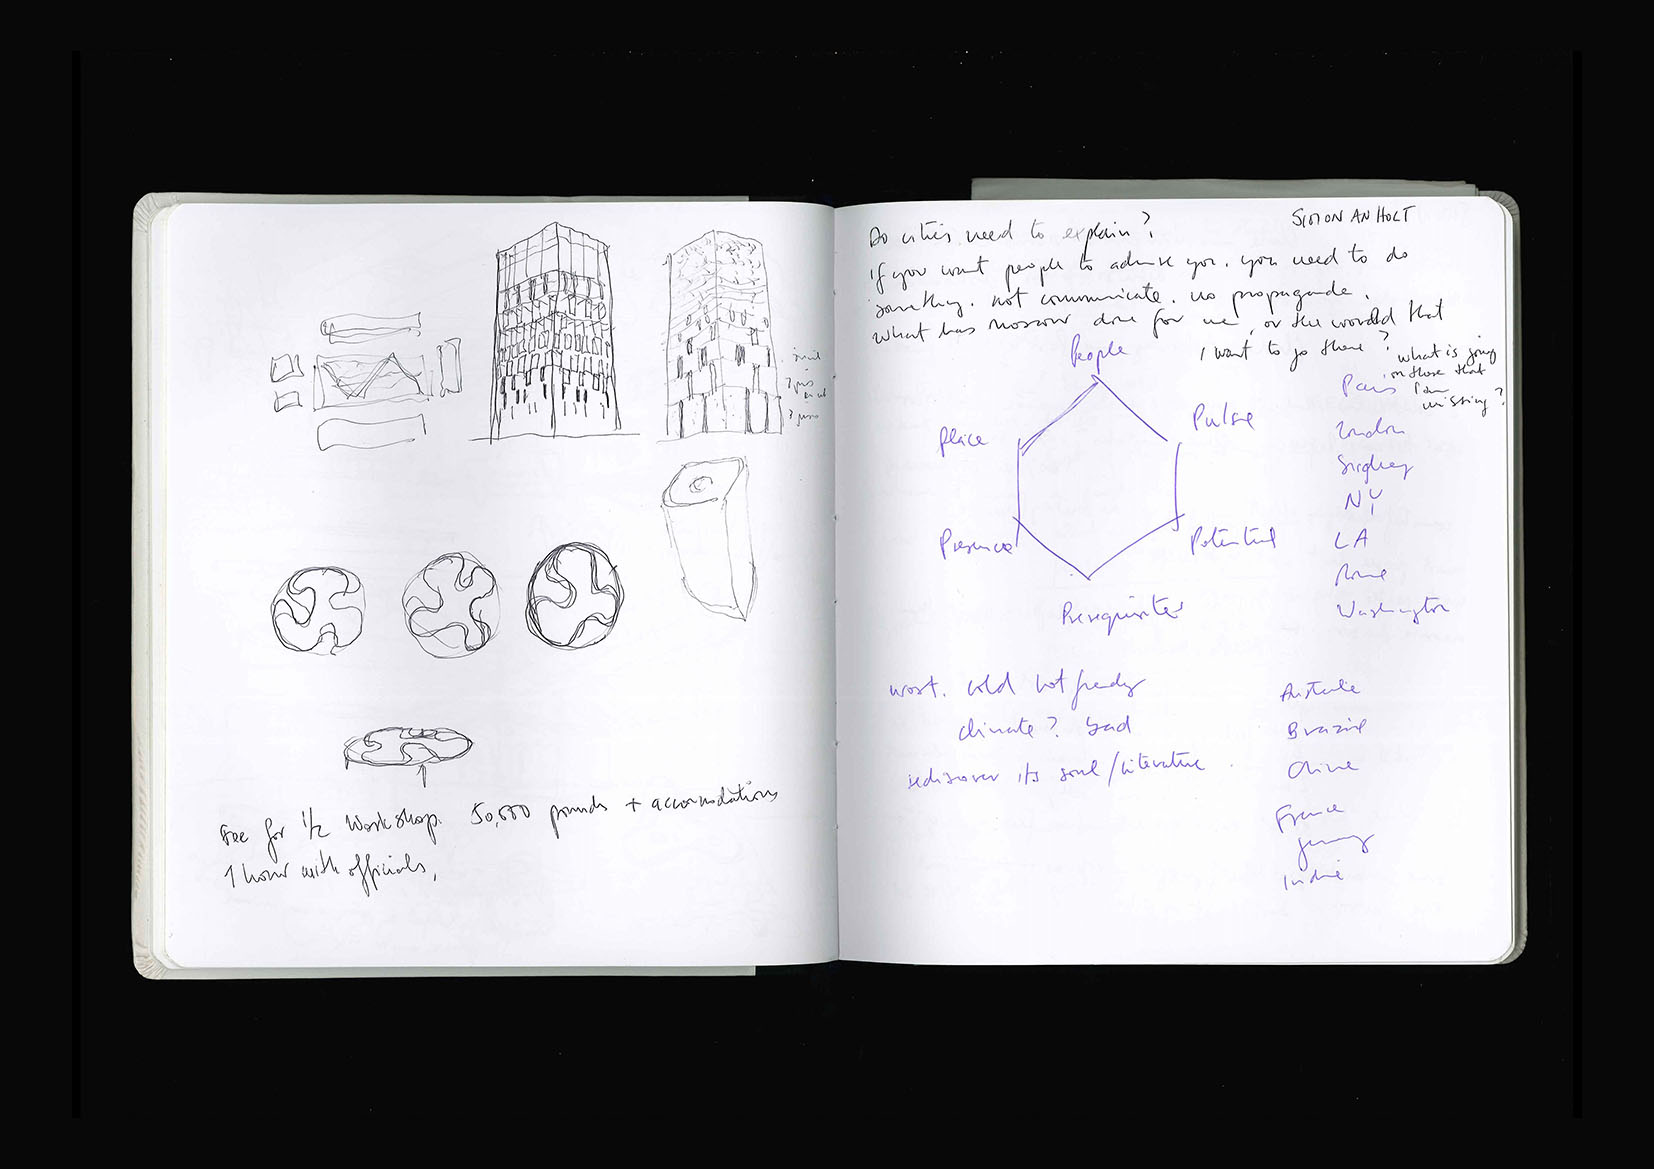 Fee for 1/2 Workshop. 50,000 pounds + accomodations
1 hour with officials,
SIMON ANHOLT
Do cities need to explain?
If you want people to admire you. you need to do
something. not communicate. no propagande.
What has Moscow done for me, or the world that
I want to go there?
what is going
on there that
I am
missing?
People
Pulse
Place
Presence
Potential
Prerequisites
Paris
London
Sydney
NY
LA
Rome
Washington
worst. cold not
climate? bad
rediscover its soul/literature
Australie
Brazil
Chine
France
Germany
Indie